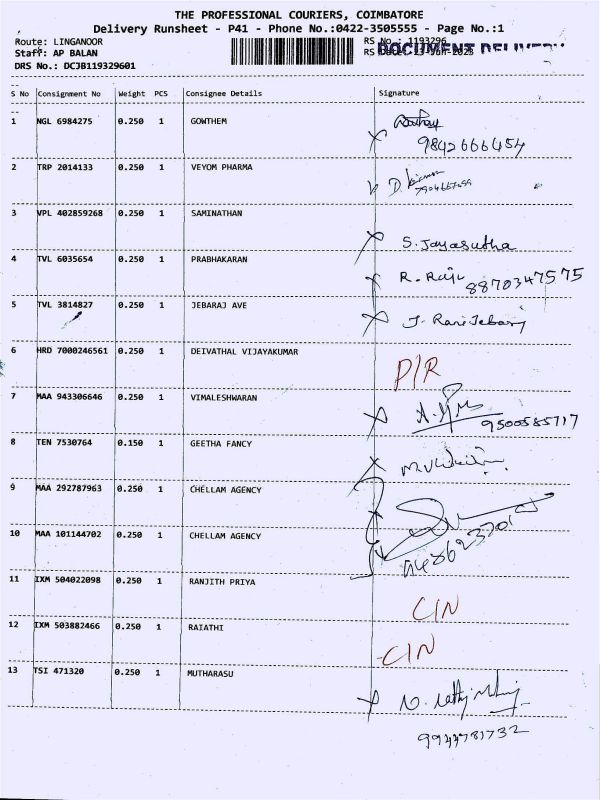 THE PROFESSIONAL COURIERS, COIMBATORE
Delivery Runsheet - P41 - Phone No.:0422-3505555 - Page No.:1
Route: LINGANOOR RS No : 1193296
Staff: AP BALAN RS Date: 23-Jun-2023
DOCUMENT DELIVERY
DRS No.: DCJB119329601
S No Consignment No Weight PCS Consignee Details Signature
1 NGL 6984275 0.250 1 GOWTHEM
9842666454
2 TRP 2014133 0.250 1 VEYOM PHARMA D.
3 VPL 402859268 0.250 1 SAMINATHAN
S. Jayasutha
4 TVL 6035654 0.250 1 PRABHAKARAN
R. Raju 8870347575
5 TVL 3814827 0.250 1 JEBARAJ AVE
J. Rani Jebaraj
6 HRD 7000246561 0.250 1 DEIVATHAL VIJAYAKUMAR
P/R
7 MAA 943306646 0.250 1 VIMALESHWARAN
9500585717
8 TEN 7530764 0.150 1 GEETHA FANCY
9 MAA 292787963 0.250 1 CHELLAM AGENCY
10 MAA 101144702 0.250 1 CHELLAM AGENCY
11 IXM 504022098 0.250 1 RANJITH PRIYA
C/N
12 IXM 503882466 0.250 1 RAIATHI
C/N
13 TSI 471320 0.250 1 MUTHARASU
9944781732